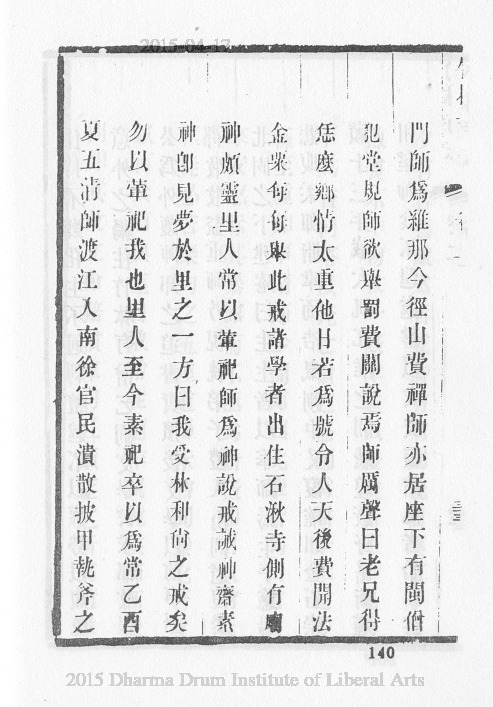 2015-04-17
門師爲維那今徑山費禪師亦居座下有閩僧
犯堂規師欲舉罰費關說焉師厲聲曰老兄得
恁麼鄉情太重他日若爲號令人天後費開法
金粟每每舉此戒諸學者出住石湫寺側有
神頗靈里人常以葷祀師爲神說戒誡神齋素
神卽見夢於里之一方曰我受林和尙之戒矣
勿以葷祀我也里人至今素祀卒以爲常乙酉
夏五清師渡江入南徐官民潰散披甲執斧之
140
2015 Dharma Drum Institute of Liberal Arts